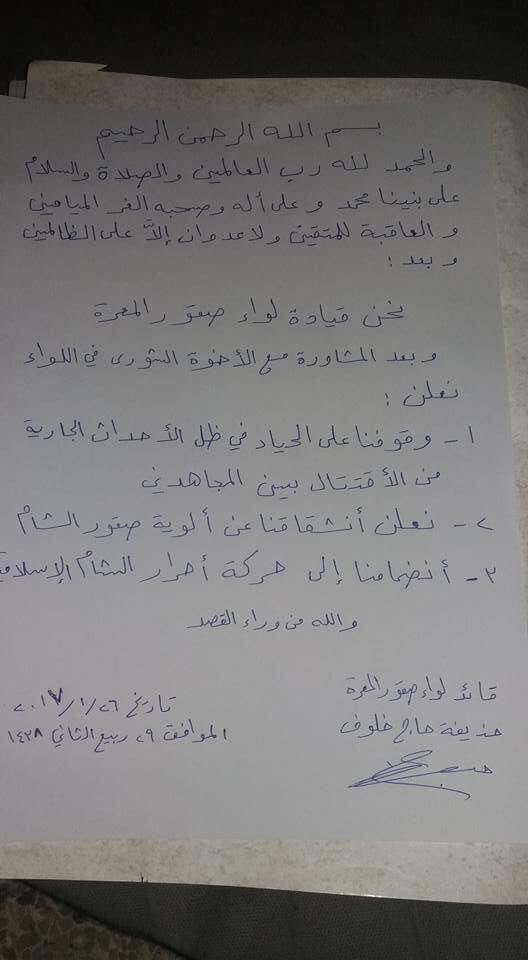 بسم الله الرحمن الرحيم
والحمد لله رب العالمين والصلاة والسلام
على نبينا محمد وعلى أله وصحبه الغر الميامين
والعاقبة للمتقين ولا عدوان إلاَّ على الظالمين
وبعد :
نحن قيادة لواء صقور المعرة
وبعد المشاورة مع الأخوة الشورى في اللواء
نعلن :
١- وقوفنا على الحياد في ظل الأحداث الجارية
من الأقتتال بين المجاهدين
٢- نعلن أنشقاقنا عن ألوية صقور الشام
٣- أنضمامنا إلى حركة أحرار الشام الإسلامية
والله من وراء القصد
قائد لواء صقور المعرة
حذيفة حاج خلوف
تاريخ ٢٦/١/٢٠١٧
الموافق ٢٩ ربيع الثاني ١٤٣٨